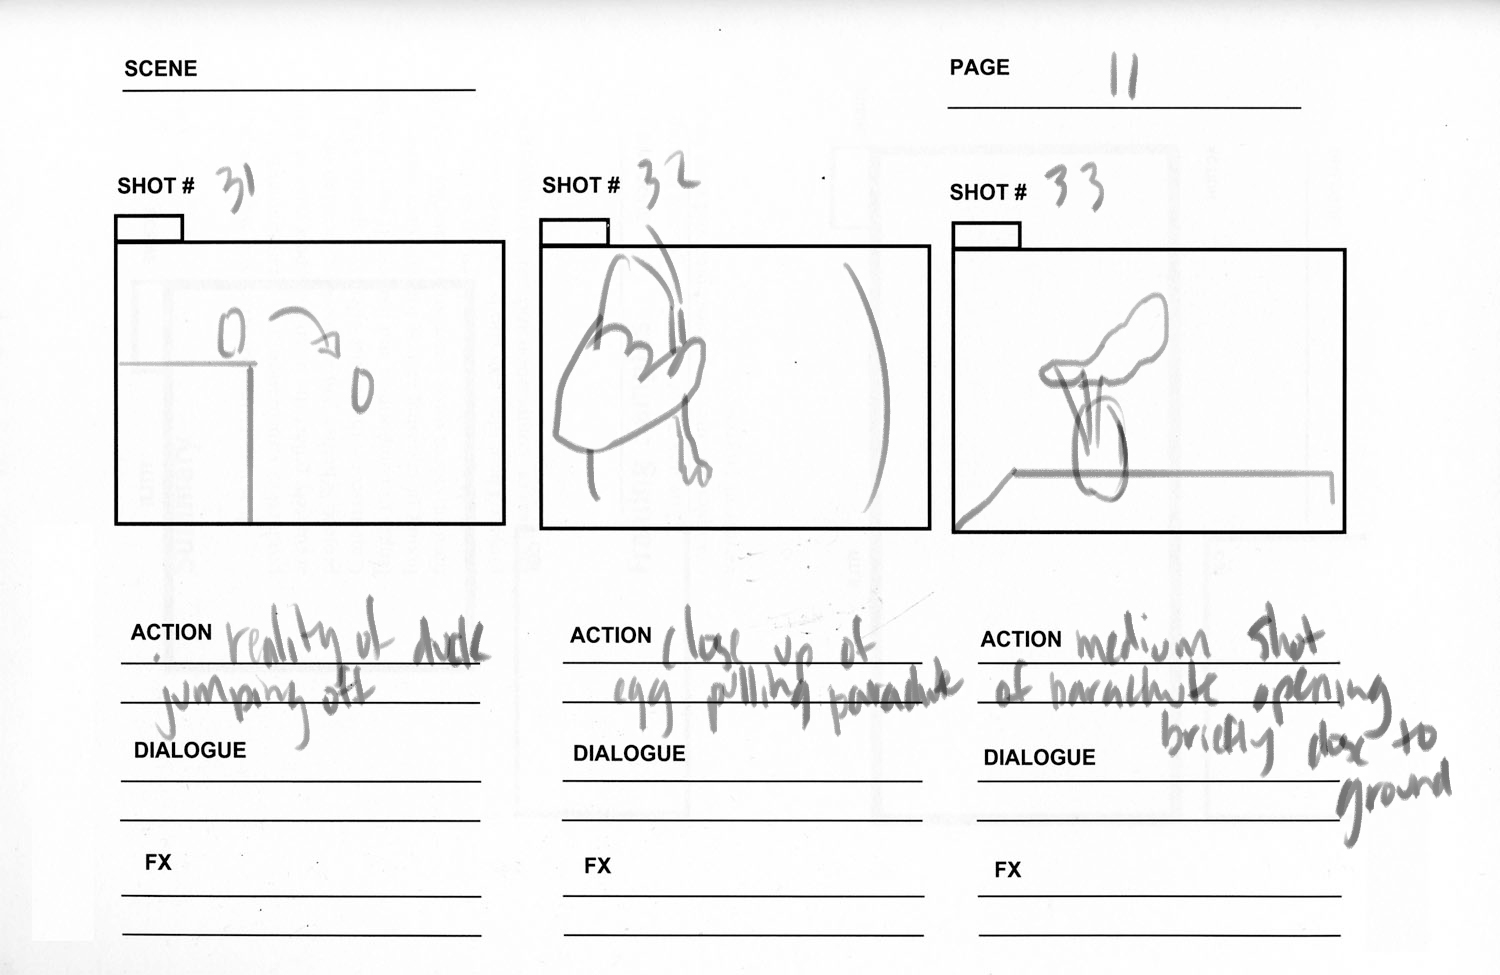 SCENE
PAGE 11
SHOT # 31
SHOT # 32
SHOT # 33
ACTION reality of duck
jumping off
DIALOGUE
FX
ACTION close up of
egg pulling parachute
DIALOGUE
FX
ACTION medium shot
of parachute opening
briefly close to
ground
DIALOGUE
FX